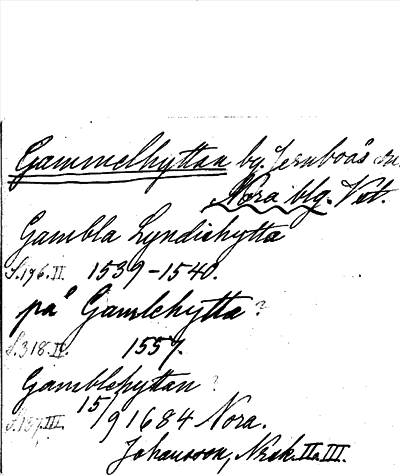 Gammelhyttan by. Jernboås sn.
Nora blg. Vst.
Gambla Lyndichytta
S.196.II. 1539-1540.
på Gamlehytta?
S.318.IV. 1557.
Gamblehyttan?
S.157.III. 15/9 1684 Nora.
Johansson, Nbsk. II o III.